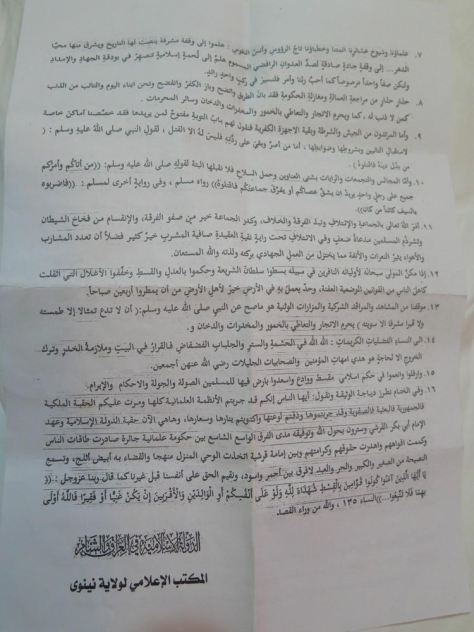 ٧. علماؤنا وشيوخ عشائرنا وخطباؤنا تاج الرؤوس وأنس النفوس : هلموا إلى وقفة مشرفة ينصت لها التاريخ ويشرق منها محيّا
الدهر... إلى وقفة جادة صادقة لصدّ العدوان الرافضي هلمّ إلى لُحمةٍ إسلاميةٍ تنصهر في بودقة الجهاد والإمداد
ولنكن صفاً واحداً مرصوصاً كما أحبّ ربنا وأمر فلنسير في ركبٍ واحدٍ
٨. حذارِ حذارِ من مراجعة العمالة ومغازلة الحكومة فقد بان الطريق واتضح وباز الكفرُ وافتضح ونحن أبناء اليوم والتائب من الذنب
كمن لا ذنب له ، كما ويحرم الاتجار والتعاطي بالخمور والمخدرات والدخان وسائر المحرمات .
٩. وأما المرتدون من الجيش والشرطة وبقية الأجهزة الكفرية فنقول لهم بابُ التوبة مفتوحٌ لمن يريدها فقد خصّصنا أماكنَ خاصة
لاستقبال التائبين وبشروطها وضوابطها ، أما من أصرّ وبقيَ على ردّته فليس له إلا القتل ، لقول النبي صلى الله عليه وسلم : (
من بدّل دينه فاقتلوه ) .
١٠. وأمّا المجالس والتجمعات والرايات بشتى العناوين وحمل السلاح فلا نقبلها البتة لقوله صلى الله عليه وسلم: ((من أتاكم وأمركم
جميع على رجلٍ واحدٍ يريدُ أن يشقّ عصاكم أو يفرّق جماعتكم فاقتلوه)) رواه مسلم ، وفي رواية أخرى لمسلم : ((فاضربوه
بالسيف كائناً من كان)).
١١. أمرَ اللهُ تعالى بالجماعة والائتلاف ونبذ الفرقة والخلاف، وكدر الجماعة خير من صفو الفرقة، والانقسام من فخاخ الشيطان
وتشرذُم المسلمين مدعاةُ ضعفٍ وفي الائتلاف تحت راية نقية العقيدة صافية المشرب خيرٌ كثير فضلاً أن تعدد المشارب
والأهواء يثيرُ النعرات والأنفة مما يختزل من العمل الجهادي بركته ولذته والله المستعان.
١٢. إذا مكّن المولى سبحانه لأوليائه النافرين في سبيله بسطوا سلطان الشريعة وحكموا بالعدل والقسط وخفّفوا الأغلال التي أثقلت
كاهل الناس من القوانين الوضعية العفنة، وحدّ يعملُ به في الأرض خيرٌ لأهل الأرض من أن يمطروا أربعين صباحاً.
١٣. موقفنا من المشاهد والمراقد الشركية والمزارات الوثنية هو ماصح عن النبي صلى الله عليه وسلم:( أن لا تدع تمثالا إلا طمسته
ولا قبرا مشرفا الا سويته ) يحرم الاتجار والتعاطي بالخمور والمخدرات والدخان و.
١٤. الى النساء الفضليات الكريمات : الله الله في الحشمة والستر والجلباب الفضفاض فالقرارُ في البيت وملازمة الخدر وترك
الخروج الا لحاجة هو هدي امهات المؤمنين والصحابيات الجليلات رضي الله عنهن أجمعين.
١٥. وارفلوا وانعموا في حكم اسلامي مقسط ووادع واسعدوا بارض فيها للمسلمين الصولة والجولة والاحكام والابرام.
١٦. وفي الختام نطرز ديباجة الوثيقة ونقول: أيها الناس إنكم قد جربتم الأنظمة العلمانية كلها ومرت عليكم الحقبة الملكية
فالجمهورية فالبعثية فالصفوية وقد جربتموها وذقتم لوعتها واكتويتم بنارها وسعارها، وهاهي الآن حقبة الدولة الإسلامية وعهد
الإمام أبي بكر القرشي وسترون بحول الله وتوفيقه مدى الفرق الواسع الشاسع بين حكومة علمانية جائرة صادرت طاقات الناس
وكممت افواههم واهدرت حقوقهم وكرامتهم وبين إمامة قرشية اتخذت الوحي المنزل منهجا والقضاء به أبيض أثلج، وتسمع
النصيحة من الصغير والكبير والحر والعبد لا فرق بين أحمر واسود، ونقيم الحق على أنفسنا قبل غيرنا كما قال ربنا عزوجل : ((
يَا أَيُّهَا الَّذِينَ آمَنُوا كُونُوا قَوَّامِينَ بِالْقِسْطِ شُهَدَاءَ لِلَّهِ وَلَوْ عَلَى أَنْفُسِكُمْ أَوِ الْوَالِدَيْنِ وَالْأَقْرَبِينَ إِنْ يَكُنْ غَنِيًّا أَوْ فَقِيرًا فَاللَّهُ أَوْلَى
بِهِمَا فَلَا تَتَّبِعُوا...)) النساء ١٣٥ ، والله من وراء القصد.
الدولة الإسلامية في العراق والشام
المكتب الإعلامي لولاية نينوى